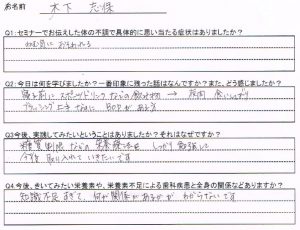 お名前 木下 志保
Q1:セミナーでお伝えした体の不調で具体的に思い当たる症状はありましたか?
ねむ気におそわれる
Q2:今日は何を学びましたか?一番印象に残った話はなんですか?また、どう感じましたか?
寝る前にスポーツドリンクなどの飲み物 → 夜間 食いしばり
ブラッシング上手なのに BOPがある方
Q3今後、実践してみたいということはありましたか?それはなぜですか?
糖質制限などの栄養療法を しっかり勉強して
今後 取り入れていきたいです
Q4:今後、きいてみたい栄養素や、栄養素不足による歯科疾患と全身の関係などありますか?
知識不足すぎて、何が関係があるかが わからないです